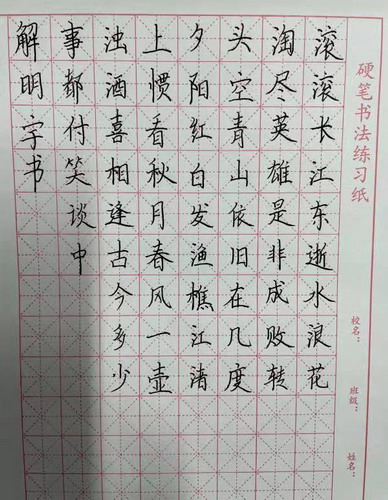 硬笔书法练习纸
校名：
班级：
姓名：
滚滚长江东逝水浪花
淘尽英雄是非成败转
头空青山依旧在几度
夕阳红白发渔樵江渚
上惯看秋月春风一壶
浊酒喜相逢古今多少
事都付笑谈中
解明字书